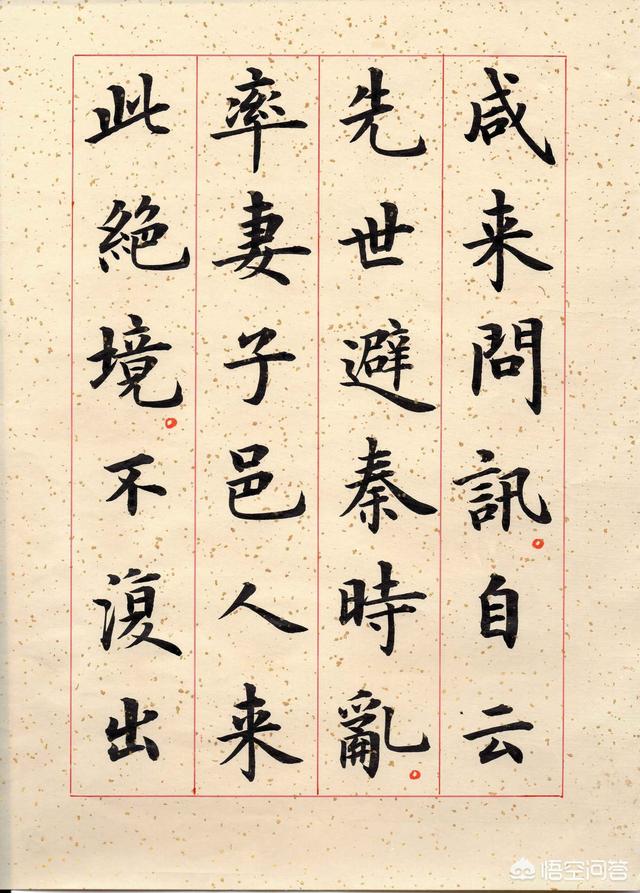 咸来問訊。自云
先世避秦時亂。
率妻子邑人来
此絶境。不復出
悟空问答